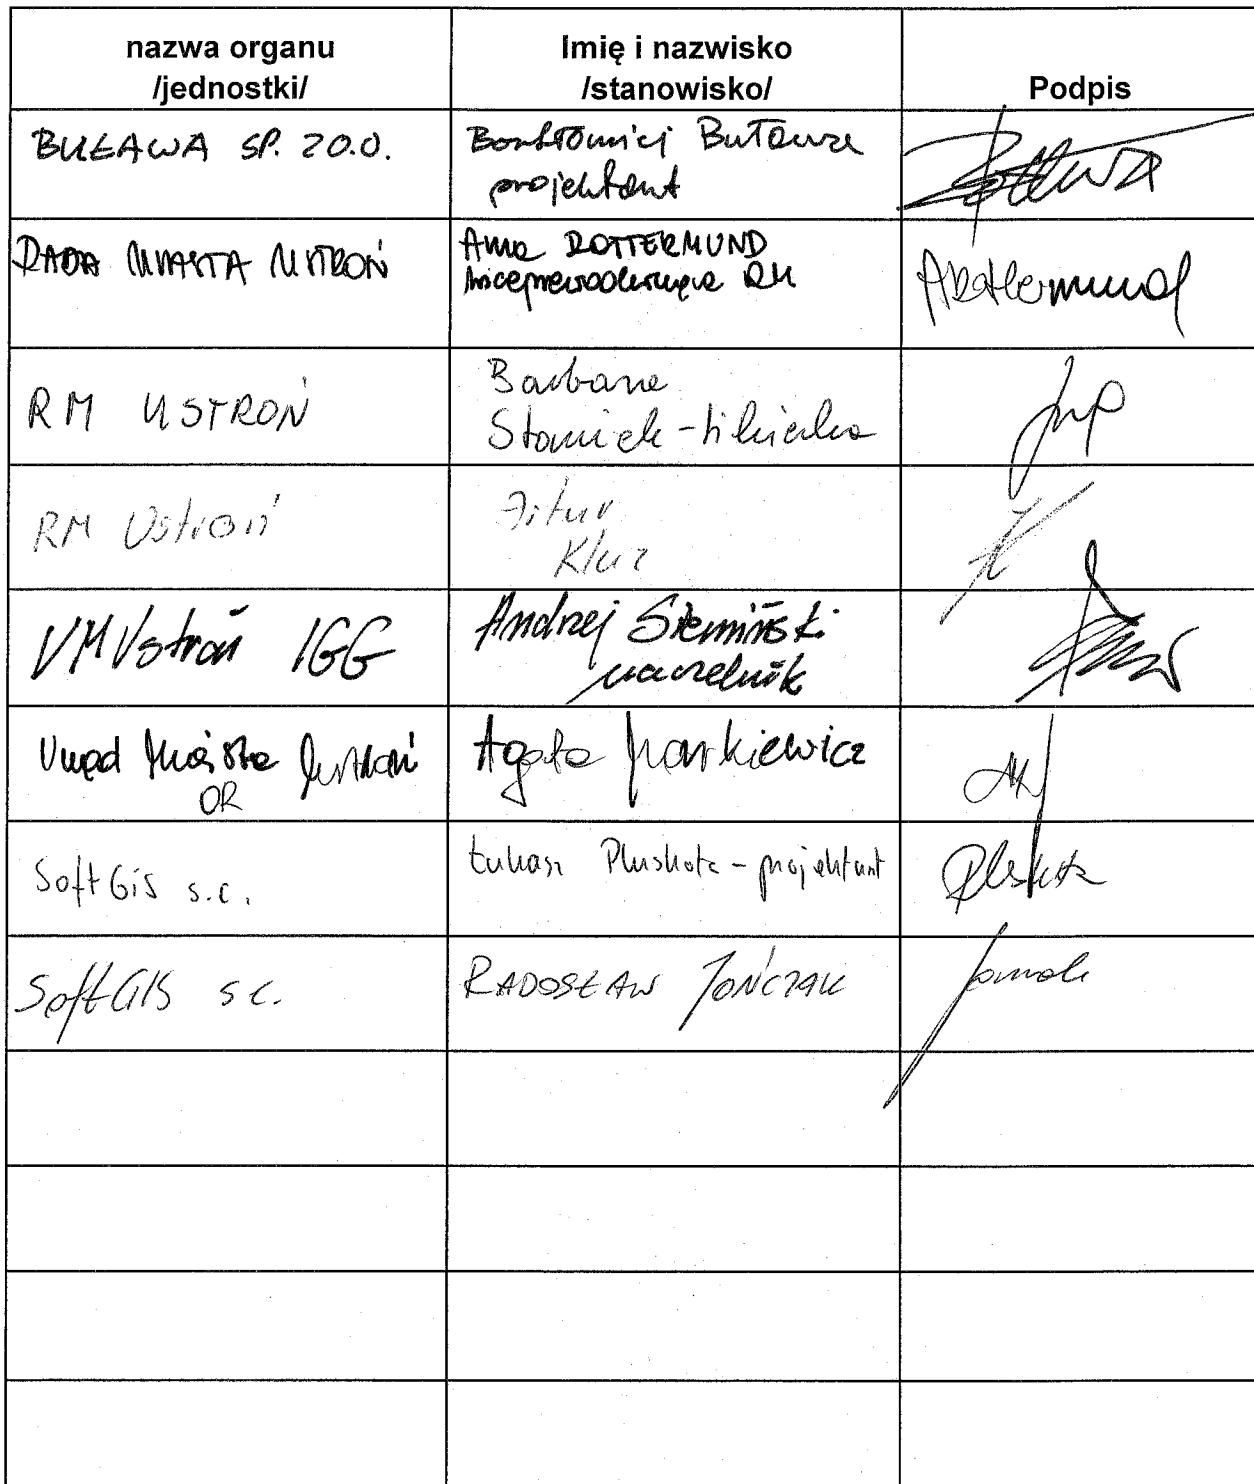 nazwa organu
/jednostki/
Imię i nazwisko
/stanowisko/
Podpis
BUŁAWA SP. ZO.O.
Bartłomiej Buława
projektant
RADA MIASTA USTROŃ
Anna ROTTERMUND
wiceprzewodnicząca RM
ARottermund
RM USTROŃ
Barbara
Staniek-
RM Ustroń
Artur
Kluz
UM Ustroń IGG
Andrzej Siemiński
naczelnik
Urząd Miasta Ustroń
OR
Agata Markiewicz
AM
SoftGis s.c.
Łukasz Pluskota - projektant
Pluskota
SoftGIS s.c.
RADOSŁAW JOŃCZAK